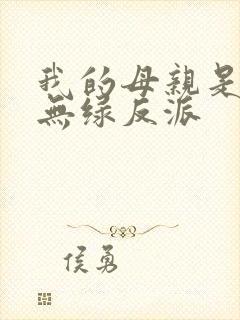 我的母親是
無緣反派
侯勇